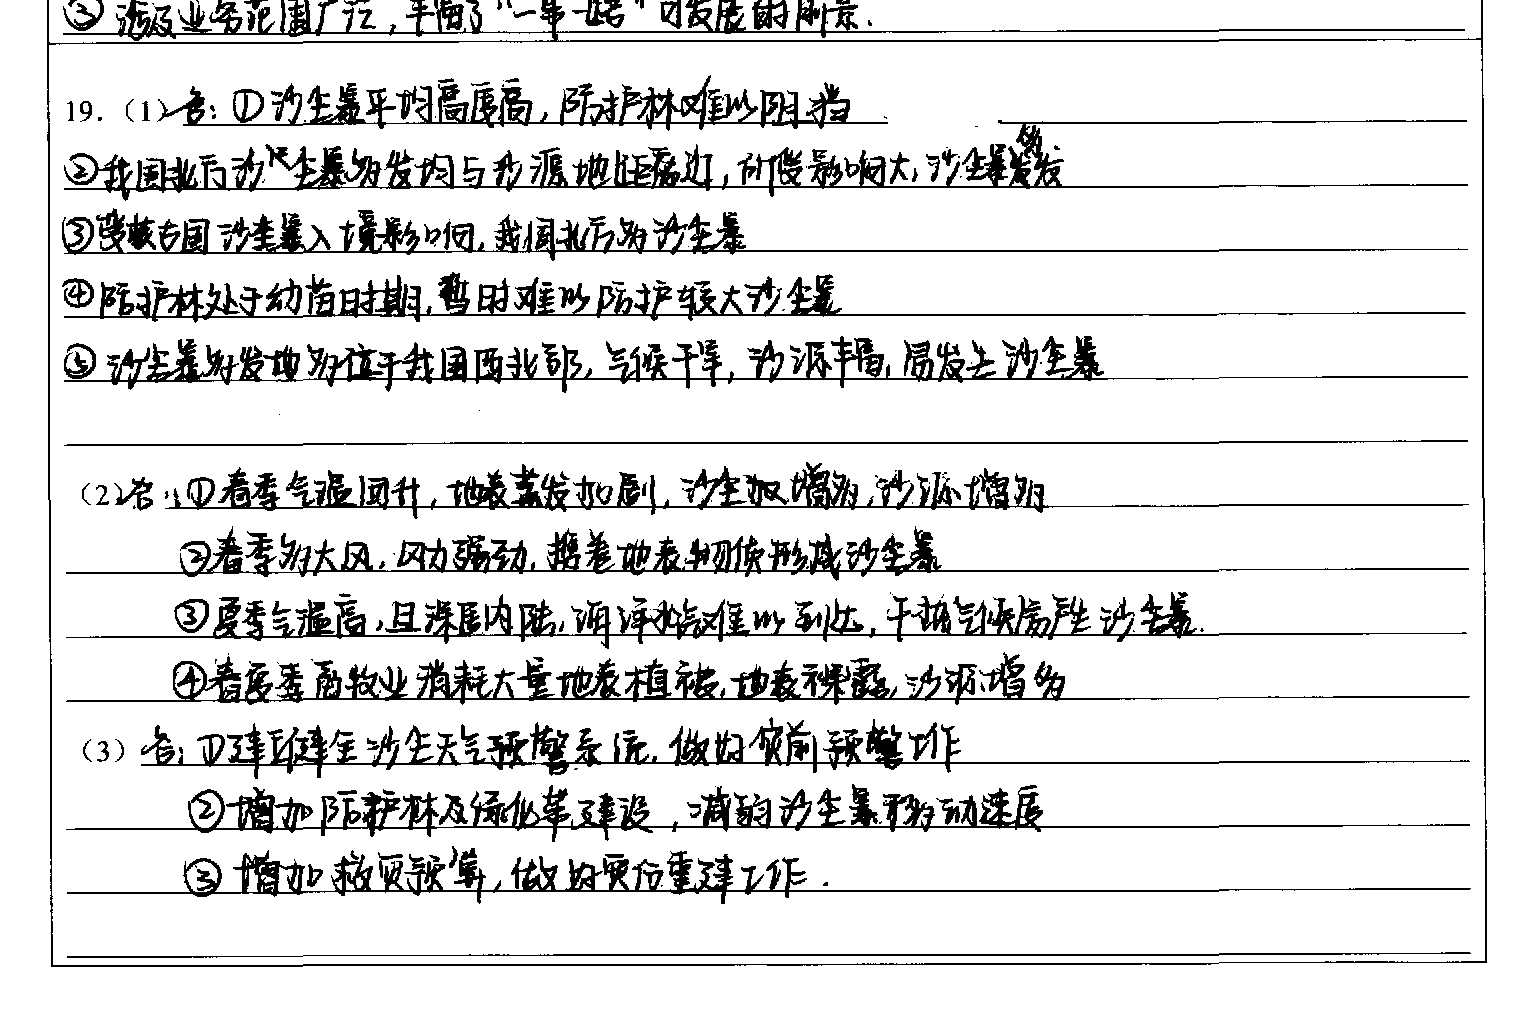 ③涉及业务范围广泛，丰富了“一带一路”可发展的前景.
19.（1）答：①沙尘暴平均高度高，防护林难以阻挡
②我国北方沙尘暴多发均与沙源地距离近，所受影响大，沙尘暴多发
③受蒙古国沙尘暴入境影响，我国北方多沙尘暴
④防护林处于幼苗时期，暂时难以防护较大沙尘暴
⑤沙尘暴多发地多位于我国西北部，气候干旱，沙源丰富，易发生沙尘暴
（2）答：①春季气温回升，地表蒸发加剧，沙尘增多，沙源增多
②春季多大风，风力强劲，携卷地表物质形成沙尘暴
③夏季气温高，且深居内陆，海洋水汽难以到达，干热气候易产生沙尘暴.
④春夏季畜牧业消耗大量地表植被，地表裸露，沙源增多
（3）答：①建立健全沙尘天气预警系统，做好灾前预警工作
②增加防护林及绿化带建设，减弱沙尘暴移动速度
③增加救灾预算，做好灾后重建工作.